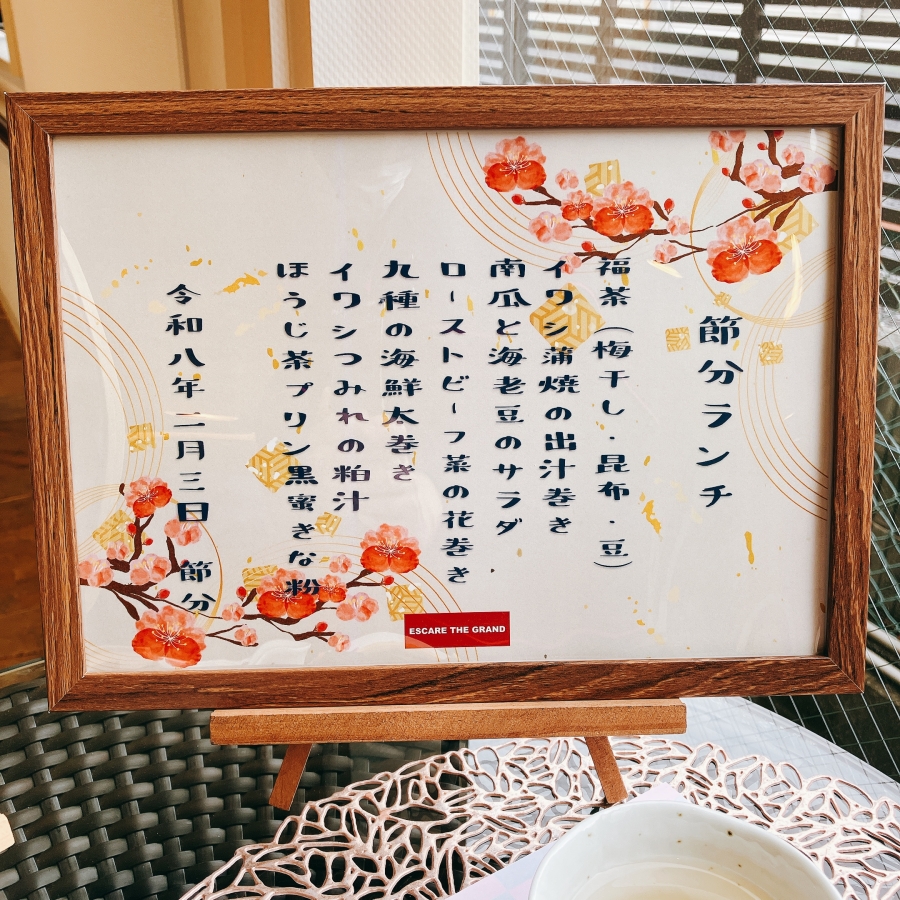 節分ランチ
福茶（梅干し・昆布・豆）
イワシ蒲焼の出汁巻き
南瓜と海老豆のサラダ
ローストビーフ菜の花巻き
九種の海鮮太巻き
イワシつみれの粕汁
ほうじ茶プリン黒蜜きな粉
令和八年二月三日　節分
ESCARE THE GRAND